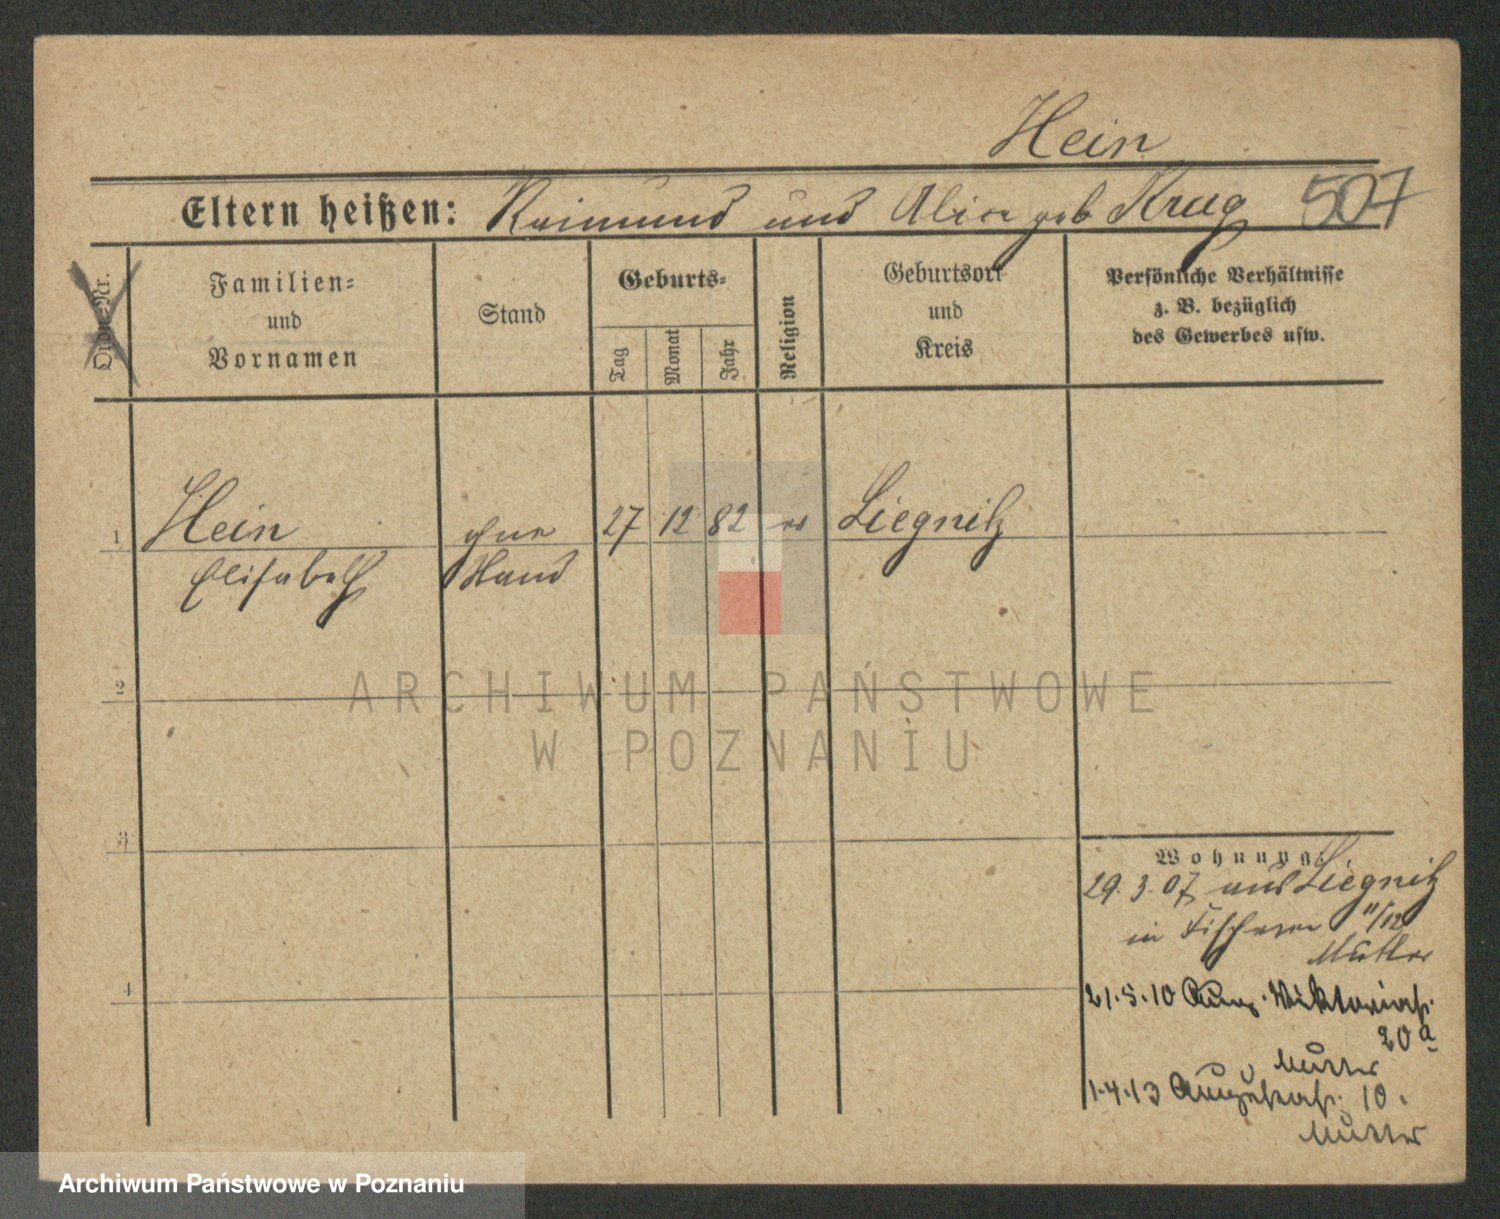 Hein
Eltern heißen: Raimund und Alice geb Krug 507
Ordn.-Nr.
Familien=
und
Vornamen
Stand
Geburts=
Tag
Monat
Jahr
Religion
Geburtsort
und
Kreis
Persönliche Verhältnisse
z. B. bezüglich
des Gewerbes usw.
1 Hein ohne 27 12 82 ev Liegnitz
Elisabeth Stand
2
ARCHIWUM PAŃSTWOWE
W POZNANIU
3
Wohnung:
29.3.07 aus Liegnitz
in Fischerei 11/12
Mutter
4
21.5.10 Viktoriastr.
20a
Mutter
1.4.13 Augustastr. 10.
Mutter
Archiwum Państwowe w Poznaniu